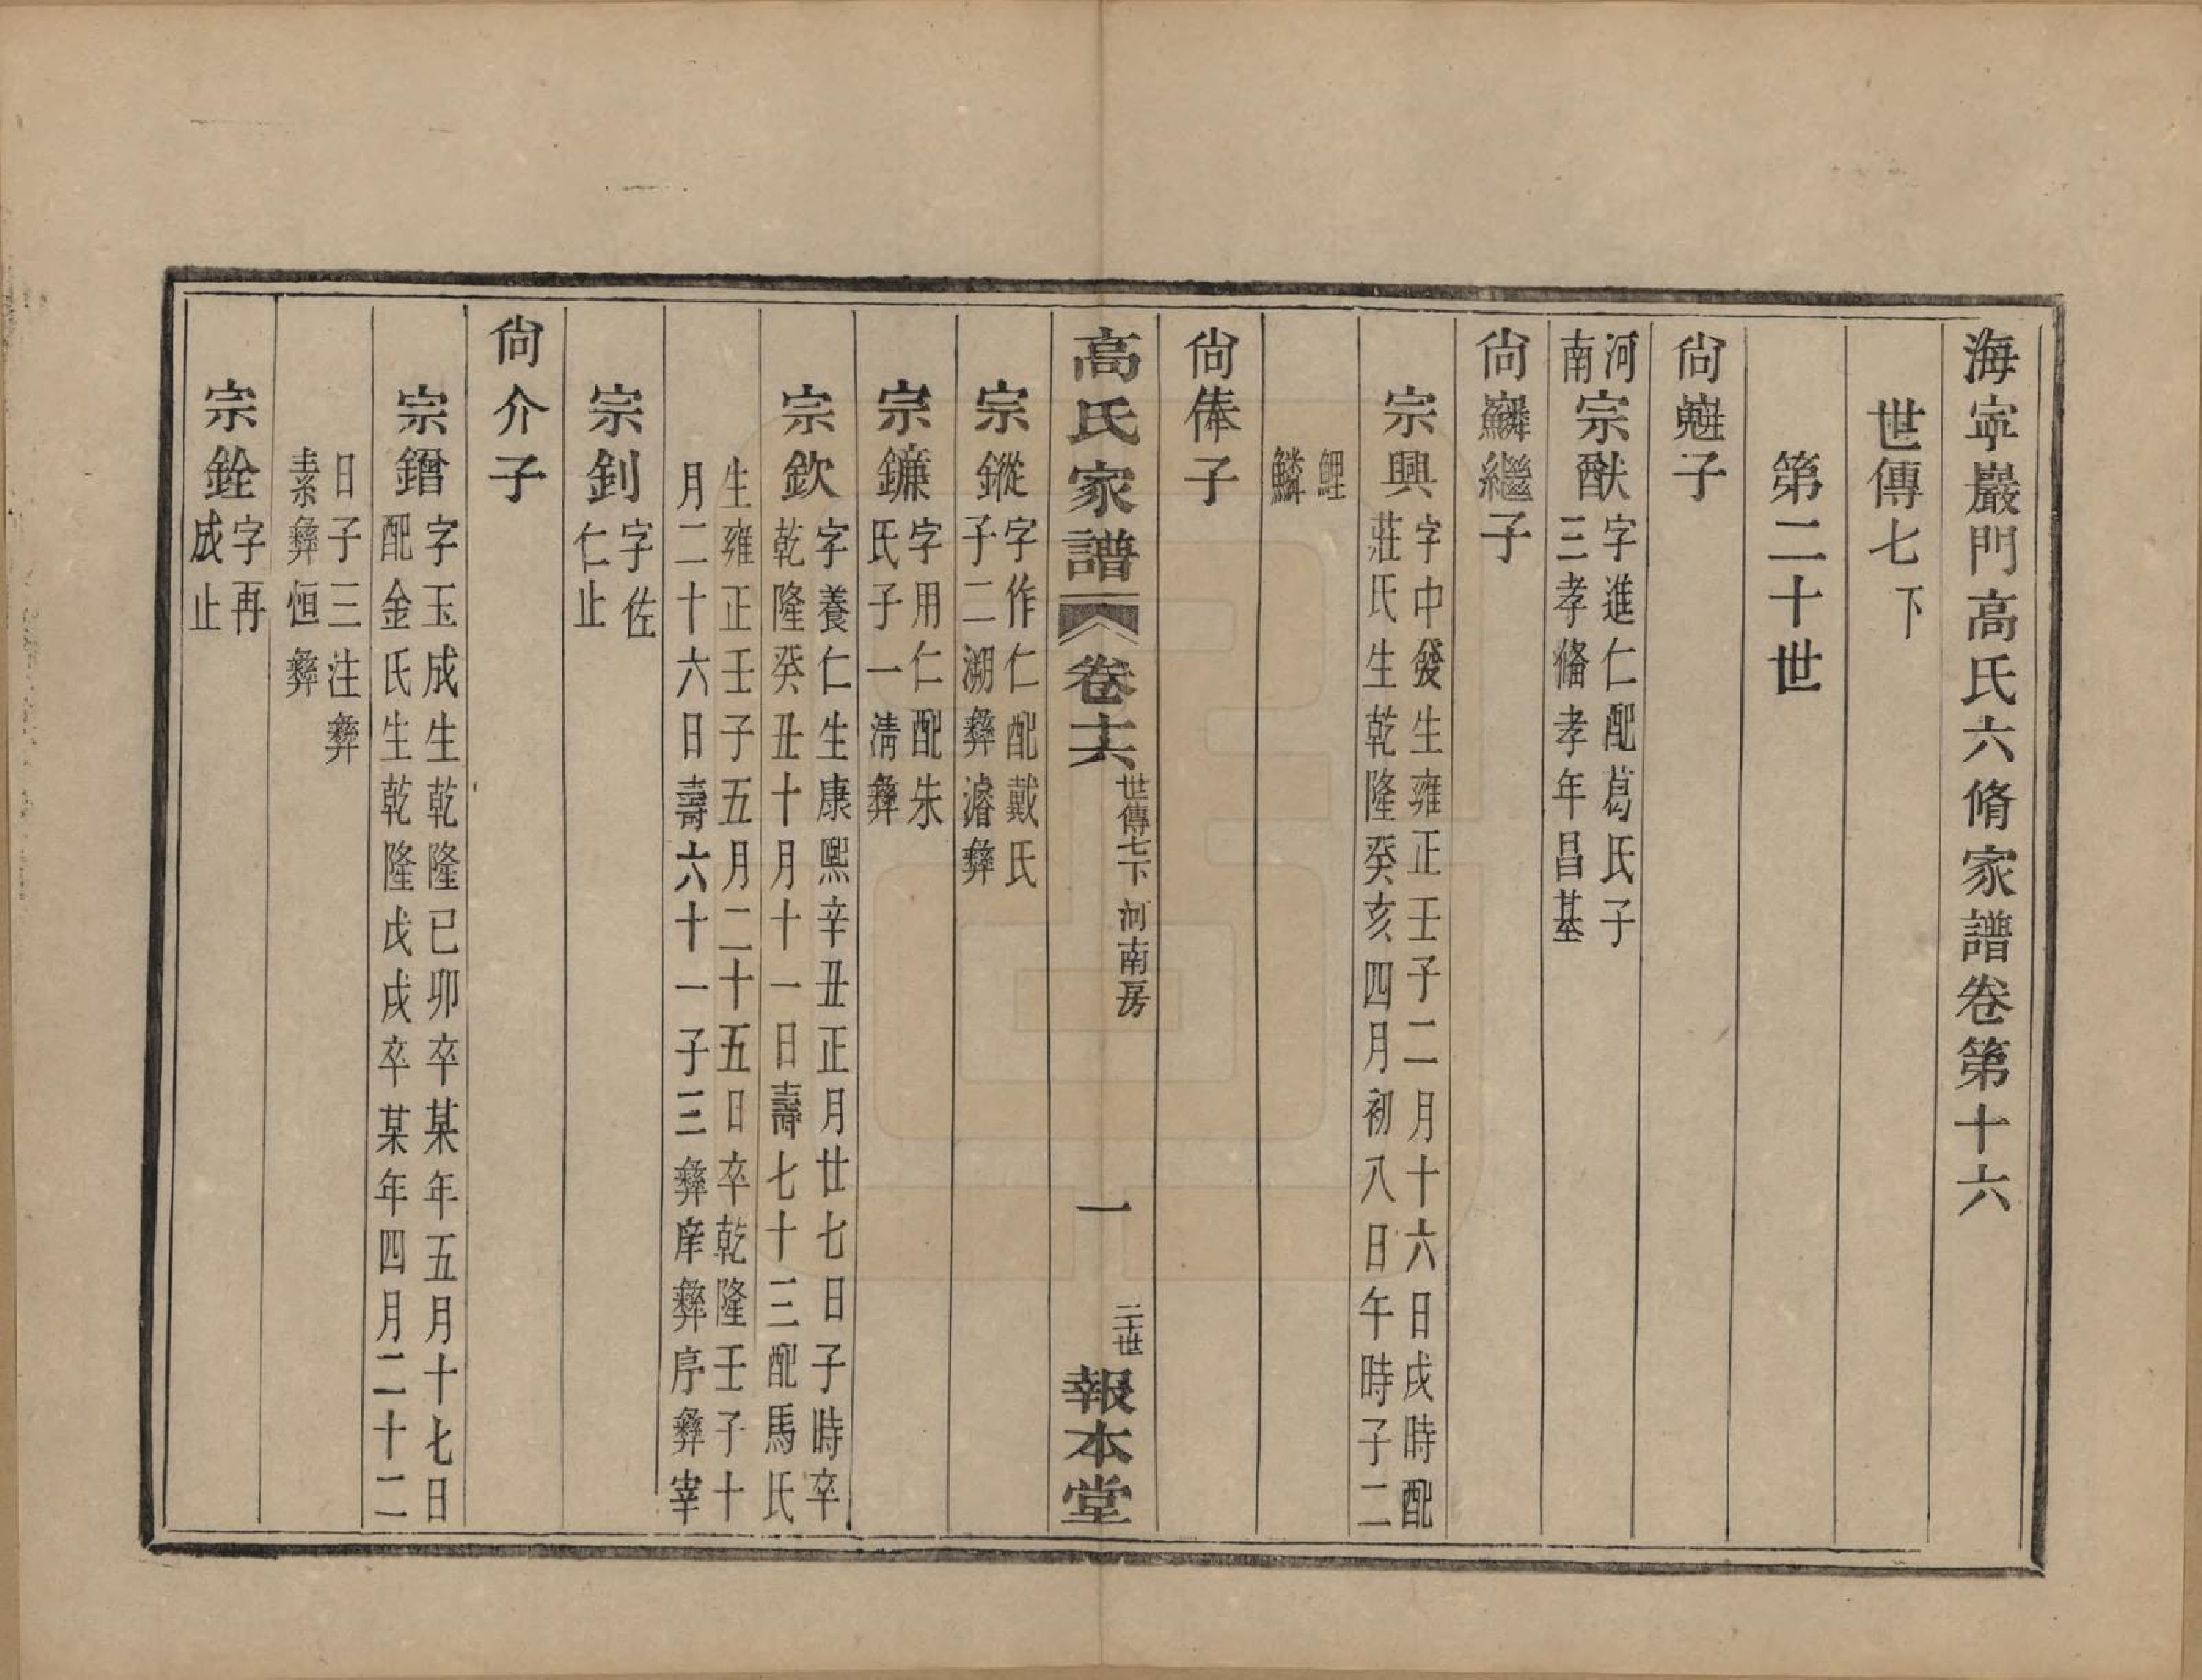 海寧巖門高氏六脩家譜卷第十六
世傳七下
第二十世
尙子
河南
宗猷字進仁配葛氏子
三孝脩孝年昌基
尙麟繼子
宗興字中發生雍正壬子二月十六日戌時配
莊氏生乾隆癸亥四月初八日午時子二
鯉
鱗
尙俸子
高氏家譜 卷十六 世傳七下 河南房 一 二十世 報本堂
宗鏦字作仁配戴氏
子二溯彝濬彝
宗鐮字用仁配朱
氏子一淸彝
宗欽字養仁生康熙辛丑正月廿七日子時卒
乾隆癸丑十月十一日壽七十三配馬氏
生雍正壬子五月二十五日卒乾隆壬子十
月二十六日壽六十一子三彝庠彝序彝宰
宗釗字佐
仁止
尙介子
宗鐕字玉成生乾隆己卯卒某年五月十七日
配金氏生乾隆戊戌卒某年四月二十二
日子三注彝
素彝恒彝
宗銓字再
成止